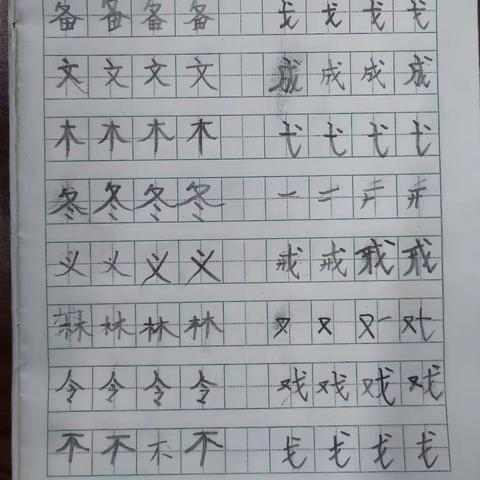 备 备 备 备 戈 戈 戈 戈
文 文 文 文 成 成 成 成
木 木 木 木 弋 弋 弋 弋
冬 冬 冬 冬 一 二
义 义 义 义 戒 戒 戒 戒
林 林 林 林 又 又 又
令 令 令 令 戏 戏 戏 戏
不 不 不 不 戈 戈 戈 戈